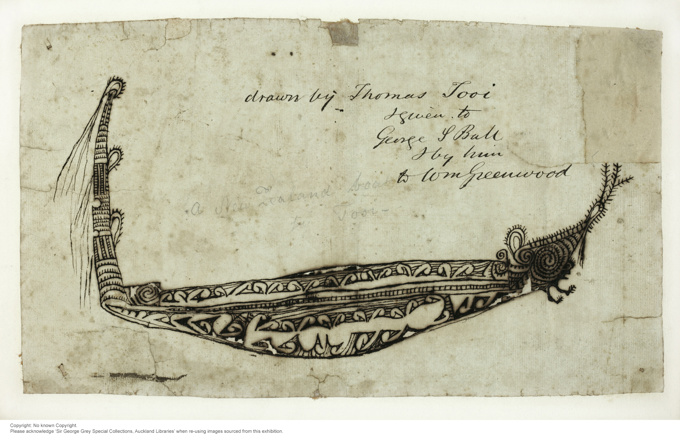 drawn by Thomas Tooi
& given to
George S Ball
& by him
to Wm Greenwood
a New Zealand
Tooi
Copyright: No known Copyright
Please acknowledge 'Sir George Grey Special Collections, Auckland Libraries' when re-using images sourced from this exhibition.